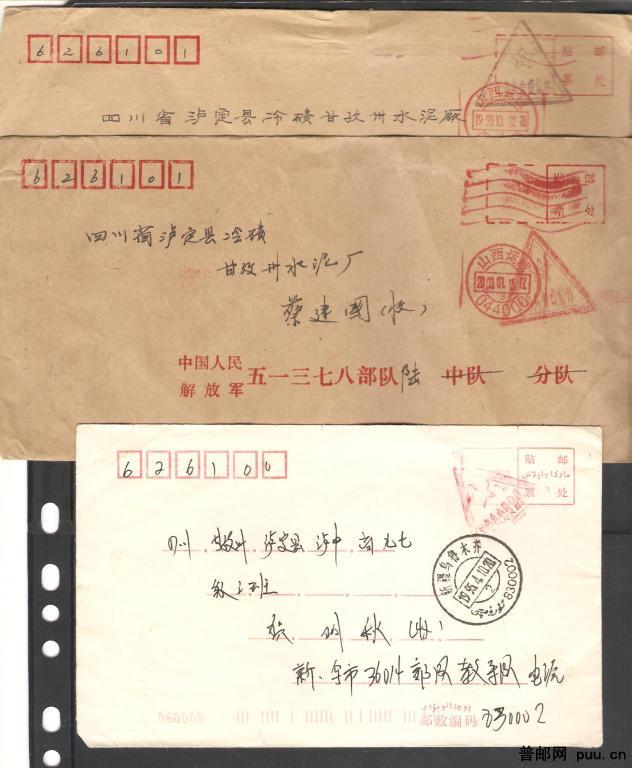 626101
贴 邮
票 处
四川省泸定县冷碛甘孜州水泥厂
626101
贴 邮
票 处
四川省泸定县冷碛
甘孜州水泥厂
山西运城
044000
蔡建国(收)
中国人民
解放军
五一三七八部队陆 中队 分队
626100
贴 邮
票 处
四川 甘孜州 泸定县 泸中 高九七
级二班
明秋(收)
新疆乌鲁木齐
1995.4.10.20
2
830002
新.乌市36014部队教导队
060000
邮政编码 830002
普邮网 puu.cn